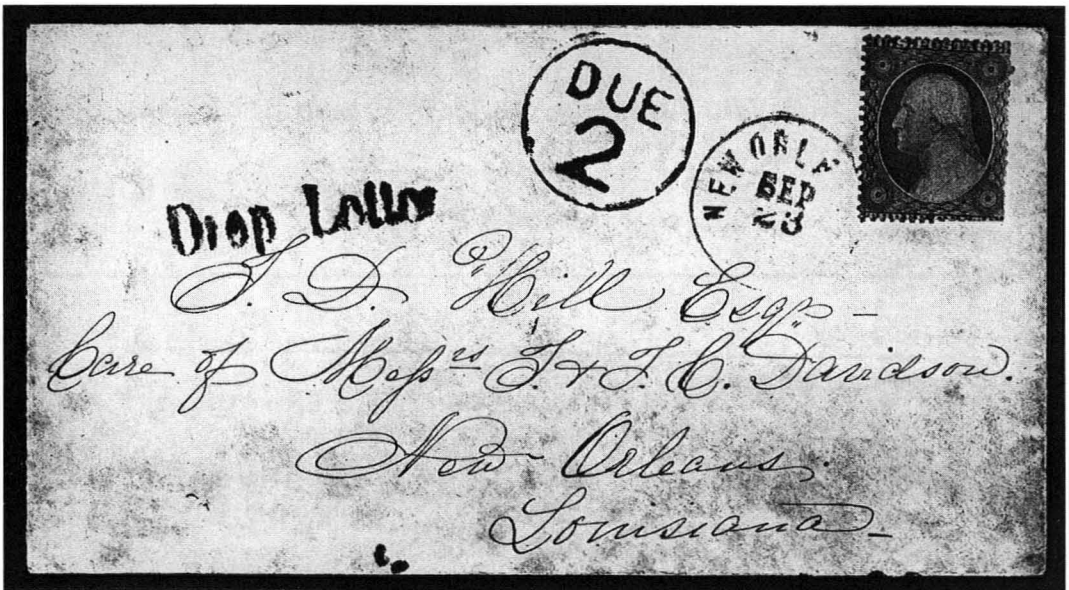 DUE
2
NEW ORLE
SEP
23
Drop Letter
T. D. Hill Esqr -
Care of Messrs T. & T. C. Davidson.
New Orleans.
Louisiana -